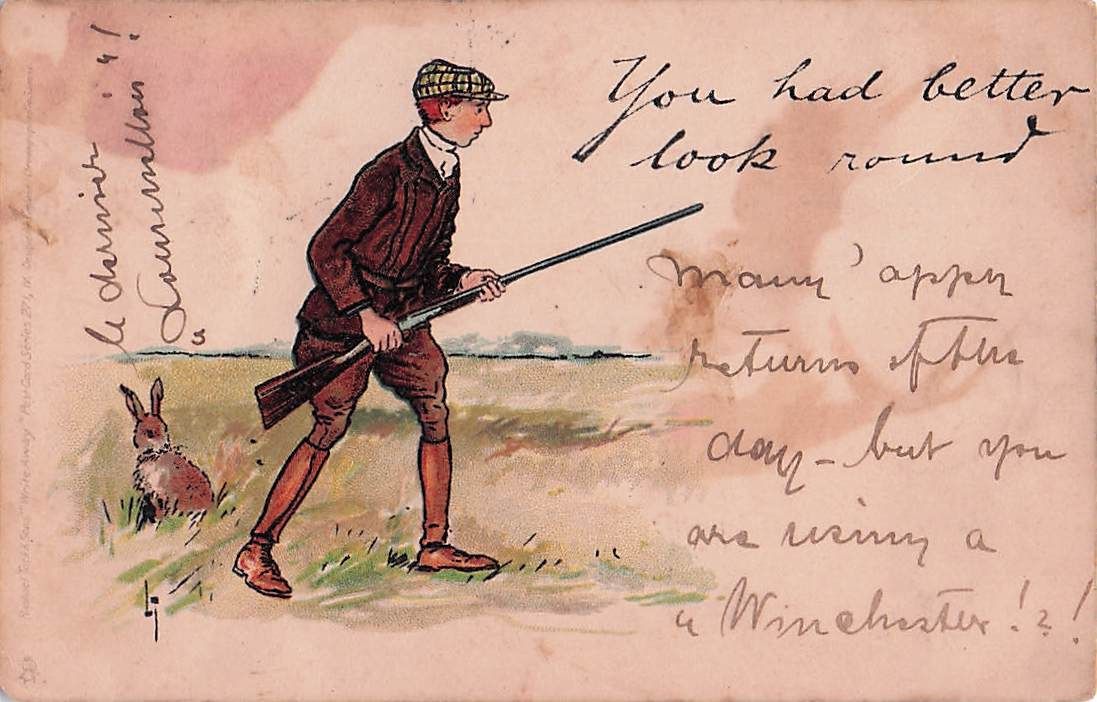 You had better
look round
Many 'appy
returns of the
day – but you
are using a
" Winchester!?!
le dernier " "!
Raphael Tuck & Sons' "Write Away" Post Card Series 271,